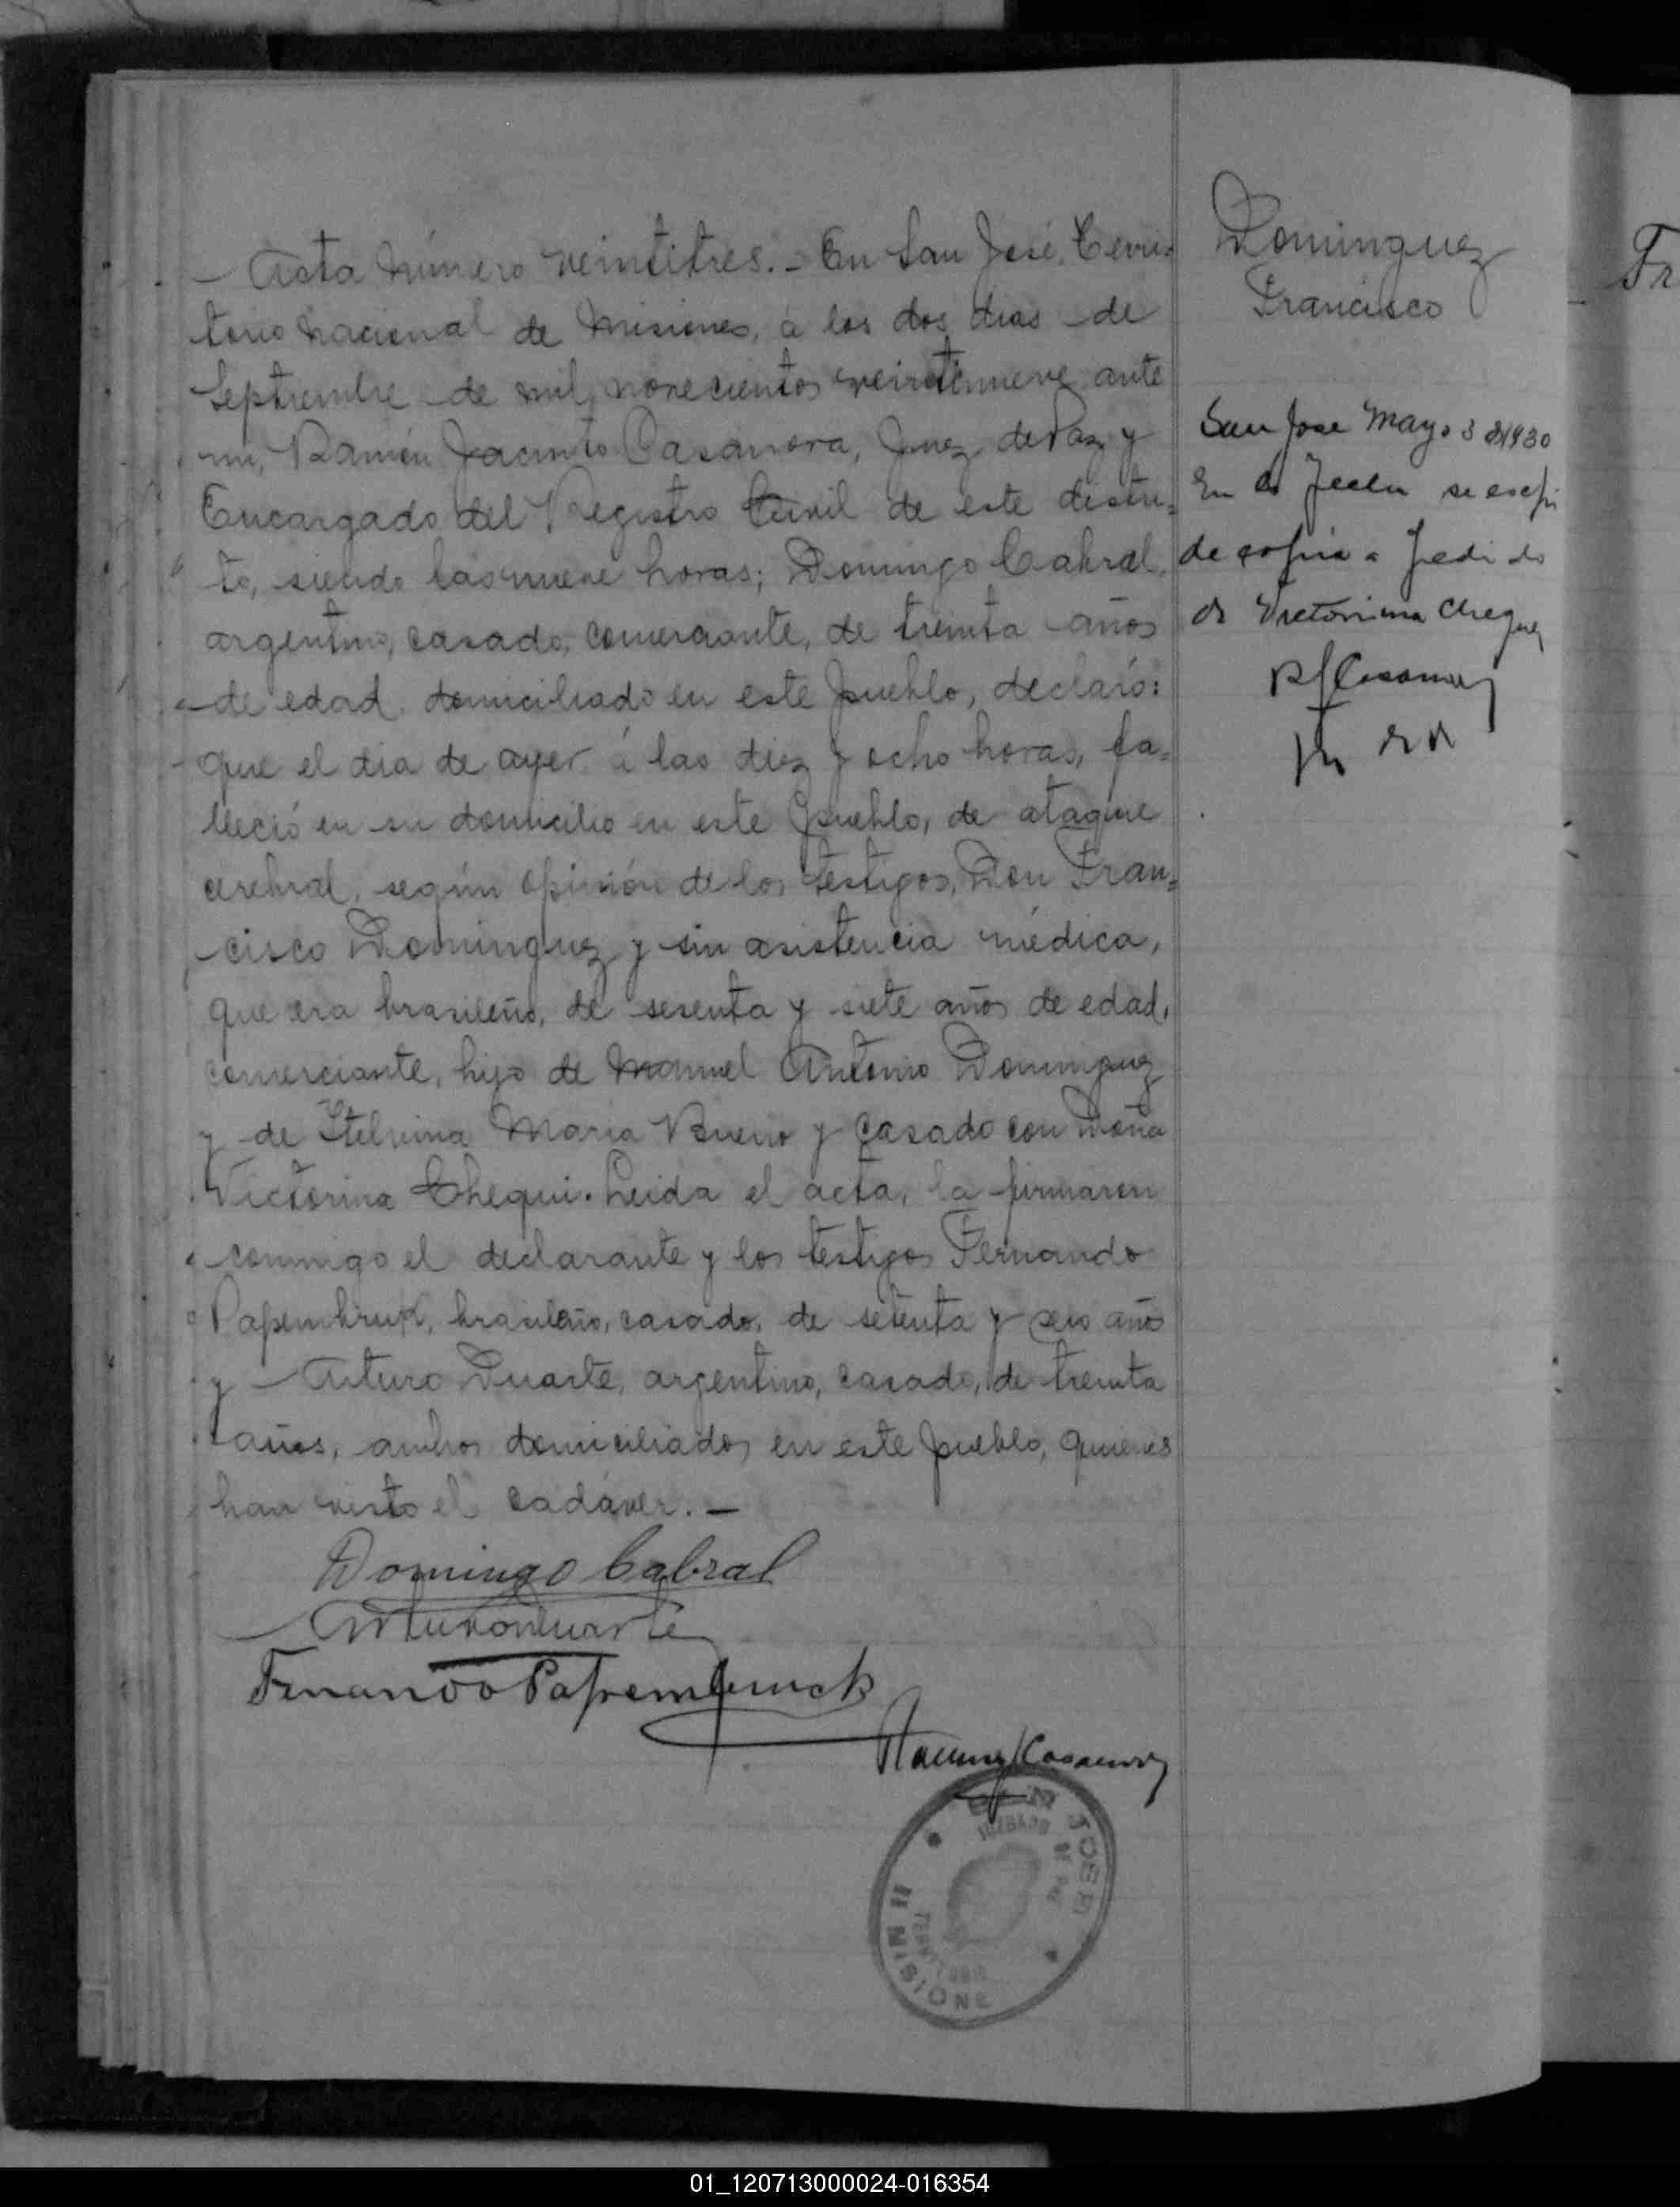 Acta número veintitres. - En San José, Terri=
torio Nacional de Misiones, á los dos dias de
Septiembre de mil novecientos veintinueve ante
mi, Ramón Jacinto Casanova, Juez de Paz y
Encargado del Registro Civil de este distri=
to, siendo las nueve horas; Domingo Cabral,
argentino, casado, comerciante, de treinta años
de edad, domiciliado en este pueblo, declaró:
que el dia de ayer á las diez y ocho horas, fa=
lleció en su domicilio en este pueblo, de ataque
cerebral, según opinión de los testigos, Don Fran=
cisco Dominguez y sin asistencia médica,
que era brasileño, de sesenta y siete años de edad,
comerciante, hijo de Manuel Antonio Dominguez
y de Etelvina Maria Bueno y casado con Doña
Victorina Chequi. Leida el acta, la firmaron
conmigo el declarante y los testigos Fernando
Papembruk, brasileño, casado, de setenta y seis años
y Arturo Duarte, argentino, casado, de treinta
años, ambos domiciliados en este pueblo, quienes
han visto el cadáver. -
Domingo Cabral
Arturo Duarte
Fernando Papembruck
Ramón J Casanova
Dominguez
Francisco
San Jose Mayo 3 1930
En la fecha se expi
de copia a pedido
de Victorina Chequi
R J Casanova
SAN JOSE
JUZGADO DE PAZ
TERRITORIO
MISIONES
Fr
01_120713000024-016354